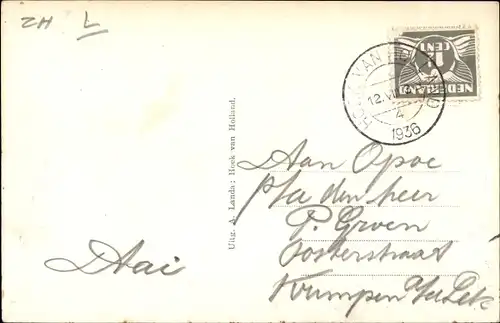 ZH L
HOEK VAN HOLLAND
12.VII
4
1936
1½ CENT
NEDERLAND
Uitg. A. Landa: Hoek van Holland.
Aan Opoe
p/a den heer
P. Groen
Oosterstraat
Krimpen a/d Lek
Aai